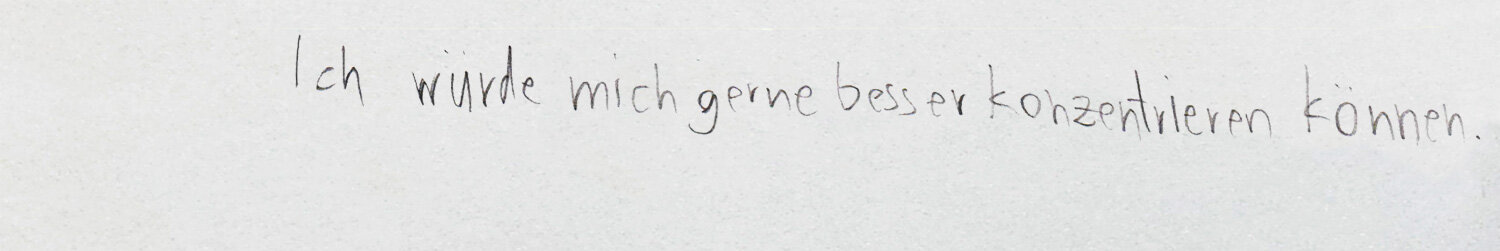 Ich würde mich gerne besser konzentrieren können.